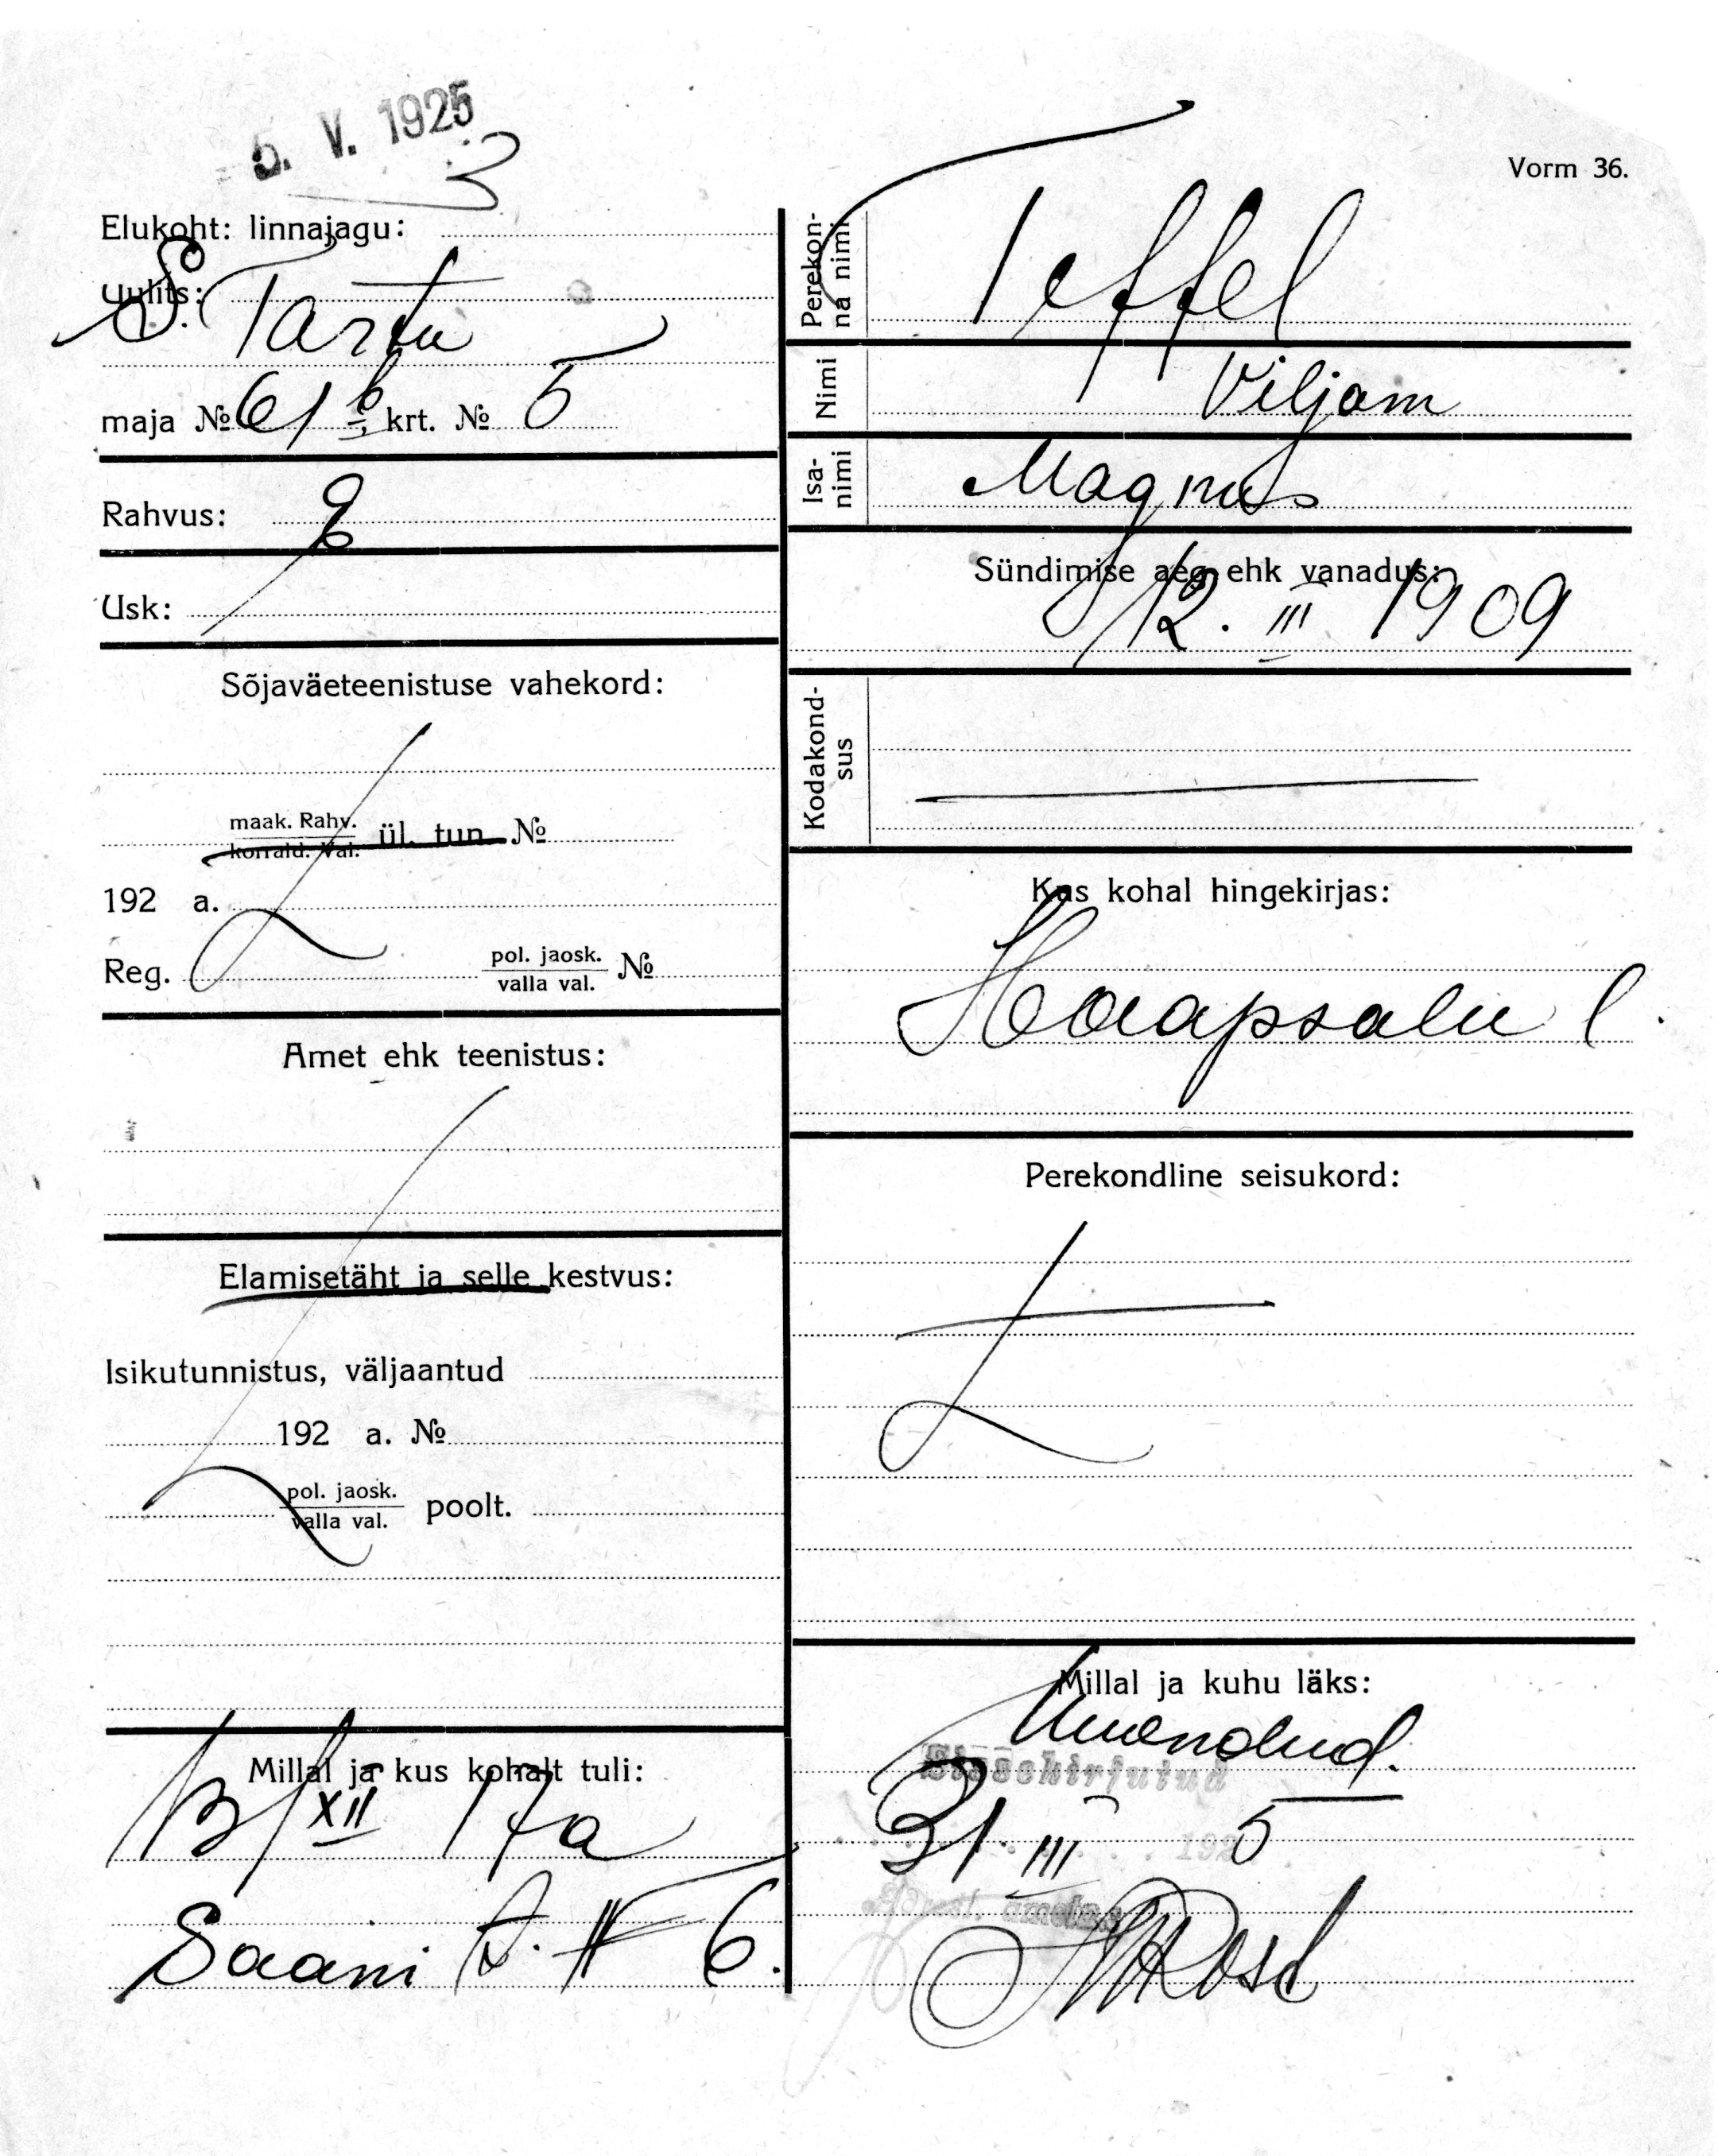 5. V. 1925
Vorm 36.
Elukoht: linnajagu:
Uulits: S. Tartu
maja № 61 b, krt. № 5
Rahvus: E
Usk:
Sõjaväeteenistuse vahekord:
maak. Rahv.
korrald. Val. ül. tun. №
192 a.
Reg. pol. jaosk.
valla val. №
Amet ehk teenistus:
Elamisetäht ja selle kestvus:
Isikutunnistus, väljaantud
192 a. №
pol. jaosk.
valla val. poolt.
Millal ja kus kohalt tuli:
13/XII 17a
Saani t. № 6.
Perekon-
na nimi
Teffel
Nimi
Viljam
Isa-
nimi
Magnus
Sündimise aeg ehk vanadus:
12. III 1909
Kodakond-
sus
Kas kohal hingekirjas:
Haapsalu l.
Perekondline seisukord:
Millal ja kuhu läks:
Uuendud.
Sissekirjutud
31 III 1925